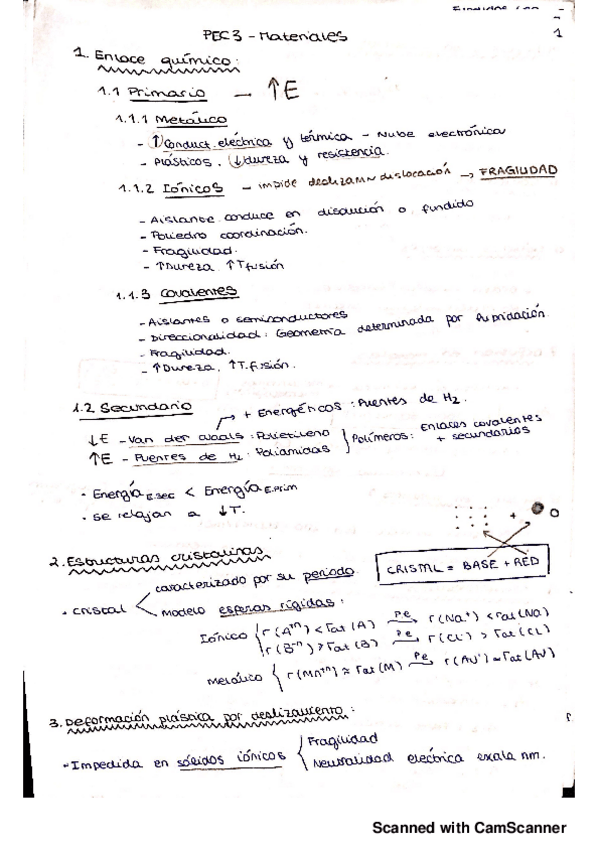 1
PEC3 - Materiales
1. Enlace químico:
1.1 Primario — ↑E
1.1.1 Metálico
- ↑Conduct. eléctrica y térmica - Nube electrónica
- Plásticos. ↓dureza y resistencia.
1.1.2 Iónicos - impide deslizam dislocación → FRAGILIDAD
- Aislante conduce en disolución o fundido
- Poliedro coordinación.
- Fragilidad.
- ↑Dureza ↑Tfusión
1.1.3 Covalentes
- Aislantes o semiconductores
- Direccionalidad: Geometría determinada por
- Fragilidad.
- ↑Dureza, ↑T.fusión.
1.2 Secundario
+ Energéticos: Puentes de H2.
↓E - Van der Waals: Polietileno
↑E - Puentes de H2: Poliamidas
Polímeros: Enlaces covalentes
+ secundarios
· Energía E.sec < Energía E.Prim
· Se relajan a ↓T.
2. Estructuras cristalinas
CRISTAL = BASE + RED
· Cristal
caracterizado por su periodo.
Modelo esferas rígidas:
Iónico r(A+n) < rat(A) Pe→ r(Na+) < rat(Na)
r(B-n) > rat(B) Pe→ r(Cl-) > rat(CL)
Metálico r(Mn+n) ≈ rat(M) Pe→
3. Deformación plástica por deslizamiento:
- Impedida en sólidos iónicos
Fragilidad
Neutralidad eléctrica escala nm.
Scanned with CamScanner